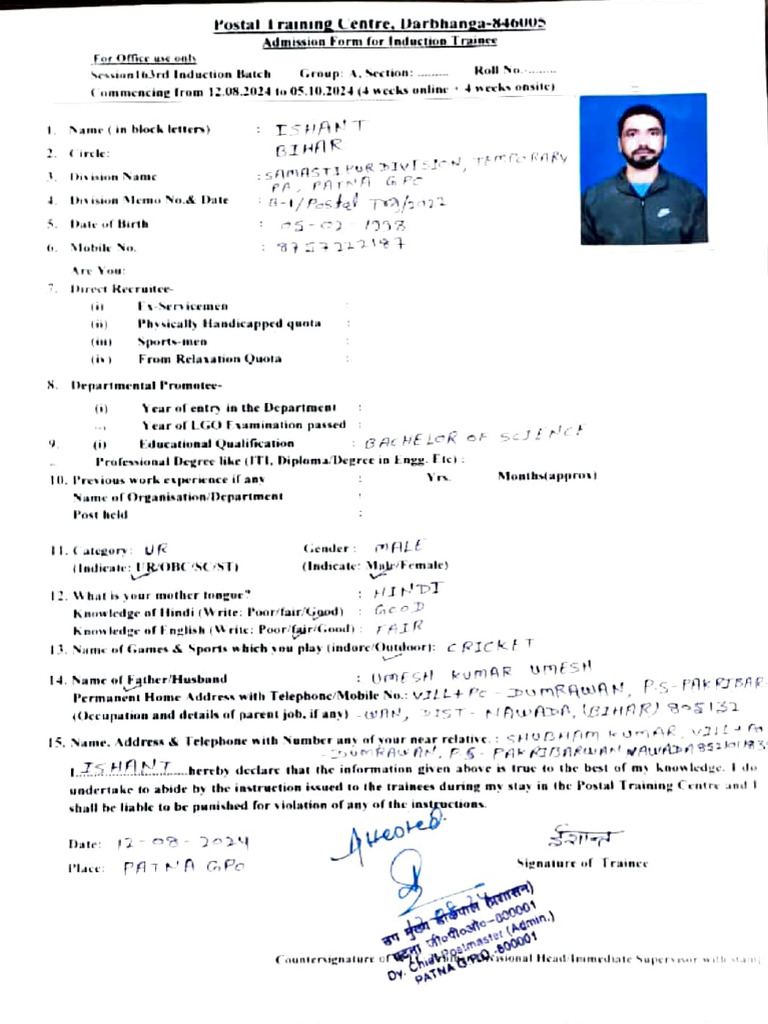 Postal Training Centre, Darbhanga-846005
Admission Form for Induction Trainee
For Office use only
Session163rd Induction Batch Group: A, Section: ......... Roll No.........
Commencing from 12.08.2024 to 05.10.2024 (4 weeks online + 4 weeks onsite)
1. Name (in block letters) : ISHANT
2. Circle: BIHAR
3. Division Name : SAMASTIPUR DIVISION, TEMPORARY
PA, PATNA GPO
4. Division Memo No.& Date : B-1/Postal /2022
5. Date of Birth : 05-02-1998
6. Mobile No. : 8757222187
Are You:
7. Direct Recruitee-
(i) Ex-Servicemen :
(ii) Physically Handicapped quota :
(iii) Sports-men :
(iv) From Relaxation Quota :
8. Departmental Promotee-
(i) Year of entry in the Department :
Year of LGO Examination passed :
9. (i) Educational Qualification : BACHELOR OF SCIENCE
Professional Degree like (ITI, Diploma/Degree in Engg. Etc) :
10. Previous work experience if any : Yrs. Months(approx)
Name of Organisation/Department :
Post held :
11. Category: UR Gender : MALE
(Indicate: UR/OBC/SC/ST) (Indicate: Male/Female)
12. What is your mother tongue? : HINDI
Knowledge of Hindi (Write: Poor/fair/Good) : GOOD
Knowledge of English (Write: Poor/fair/Good) : FAIR
13. Name of Games & Sports which you play (indore/Outdoor): CRICKET
14. Name of Father/Husband : UMESH KUMAR UMESH
Permanent Home Address with Telephone/Mobile No.: VILL+PO - DUMRAWAN, P.S-PAKRIBAR-
(Occupation and details of parent job, if any) -WAN, DIST- NAWADA, (BIHAR) 805132
15. Name, Address & Telephone with Number any of your near relative. : SHUBHAM KUMAR, VILL+PO
-DUMRAWAN, P.S- PAKRIBARWAN NAWADA
I ISHANT hereby declare that the information given above is true to the best of my knowledge. I do
undertake to abide by the instruction issued to the trainees during my stay in the Postal Training Centre and I
shall be liable to be punished for violation of any of the instructions.
Date: 12-08-2024
Place: PATNA GPO
Attested
ईशान्त
Signature of Trainee
उप मुख्य डाकपाल (प्रशासन)
पटना जी०पी०ओ०-800001
Dy. Chief Postmaster (Admn.)
PATNA G.P.O.-800001
Countersignature of Divisional Head/Immediate Supervisor with stamp